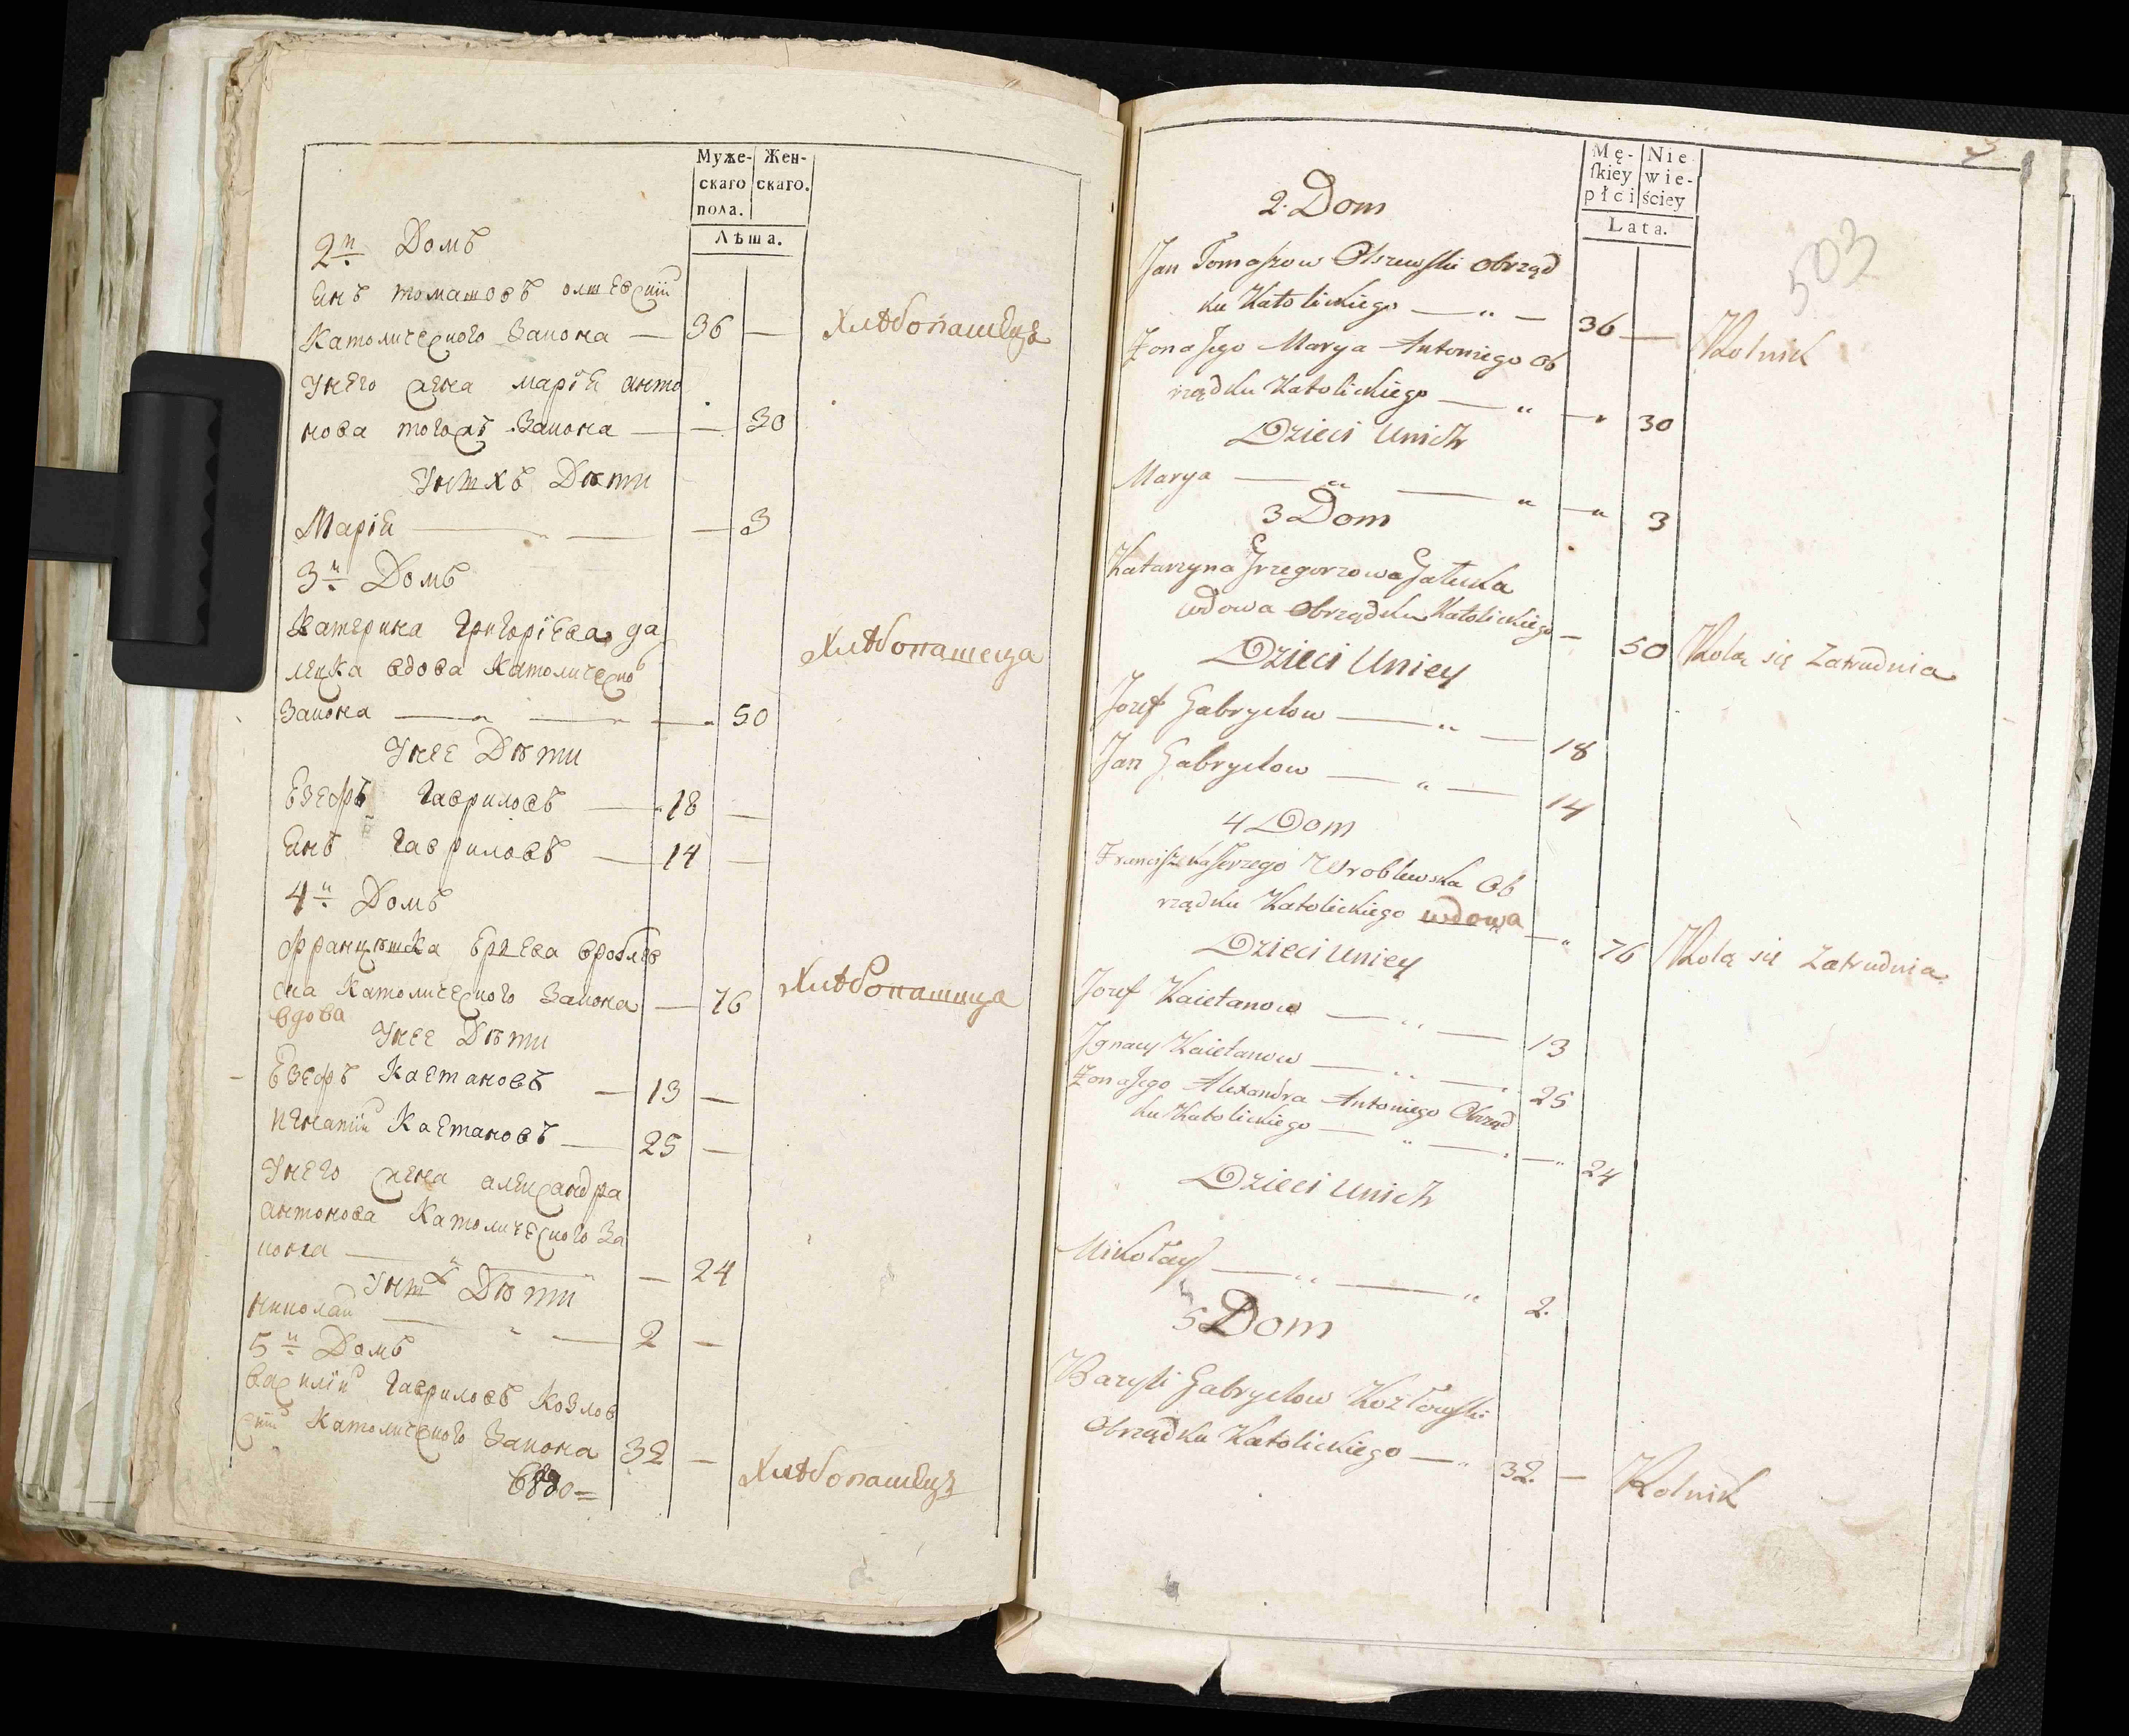 Муже- Жен-
скаго скаго.
пола.
Лѣта.
2й Домъ
Янъ томашовъ олшевскій
Католического Закона — 36 — Хлѣбопашецъ
Унего жена марія анто
нова тогожъ Закона — — 30
Унихъ Дѣти
Марія — — — 3
3й Домъ
Катерина Григоріева га
лецка вдова Католическо Хлѣбопашеца
Закона — — — 50
Унее Дѣти
Езефъ Гавриловъ — 18 —
Янъ Гавриловъ — 14 —
4й Домъ
Францѣшка Еріева вроблев
ска Католического Закона — 76 Хлѣбопашица
вдова
Унее Дѣти
Езефъ Каетановъ — 13 —
игнатій Каетановъ — 25 —
Унего жена александра
антонова Католического За
кона — — 24
Уних Дѣти
николай — — 2 —
5й Домъ
василій Гавриловъ Козлов
скій Католического Закона 32 — Хлѣбопашецъ
Mę- Nie
skiey wie-
płci ściey
Lata.
503
2. Dom
Jan Tomaszow Olszewski obrząd
ku Katolickiego — " — 36 — Rolnik
Żona Jego Marya Antoniego Ob
rządku Katolickiego — " — " 30
Dzieci Unich
Marya — " — " — " 3
3 Dom
Katarzyna Grzegorzowa Galecka
wdowa obrządku Katolickiego — 50 Rolą się Zatrudnia
Dzieci Uniey
Jozef Gabryelow — " — 18
Jan Gabryelow — " — 14
4 Dom
Franciszka Jerzego Wroblewska Ob
rządku Katolickiego wdowa — " 76 Rolą się Zatrudnia
Dzieci Uniey
Jozef Kaietanow — " — 13
Jgnacy Kaietanow — " — 25
Żona Jego Alexandra Antoniego Obrząd
ku Katolickiego — " — — " 24
Dzieci Unich
Mikołay — " — " 2.
5 Dom
Bazyli Gabryelow Kozłowski
Obrządku Katolickiego — " 32. — Rolnik